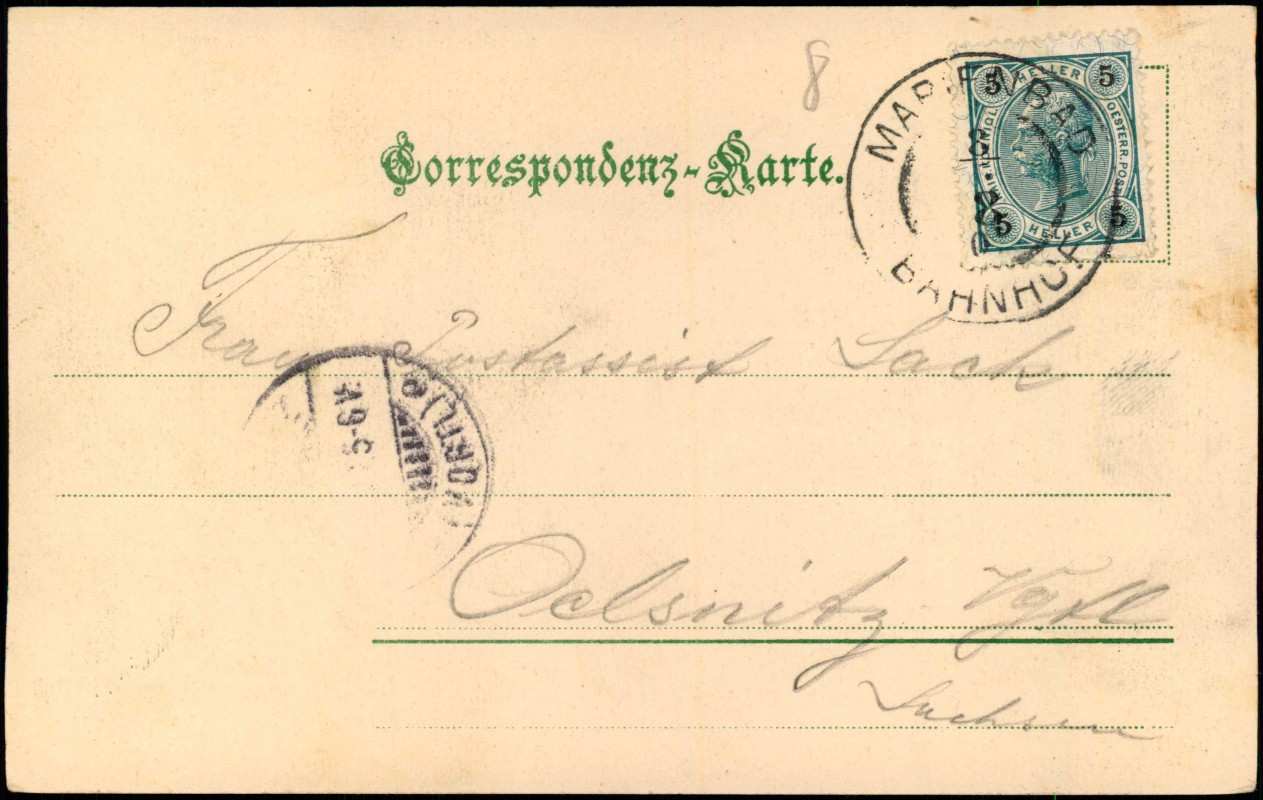 8
Correspondenz-Karte.
5 HELLER 5
OESTERR. POST
5 HELLER 5
MARIENBAD
BAHNHOF
Frau Postassist Sach
Oelsnitz Vgtl
Sachsen